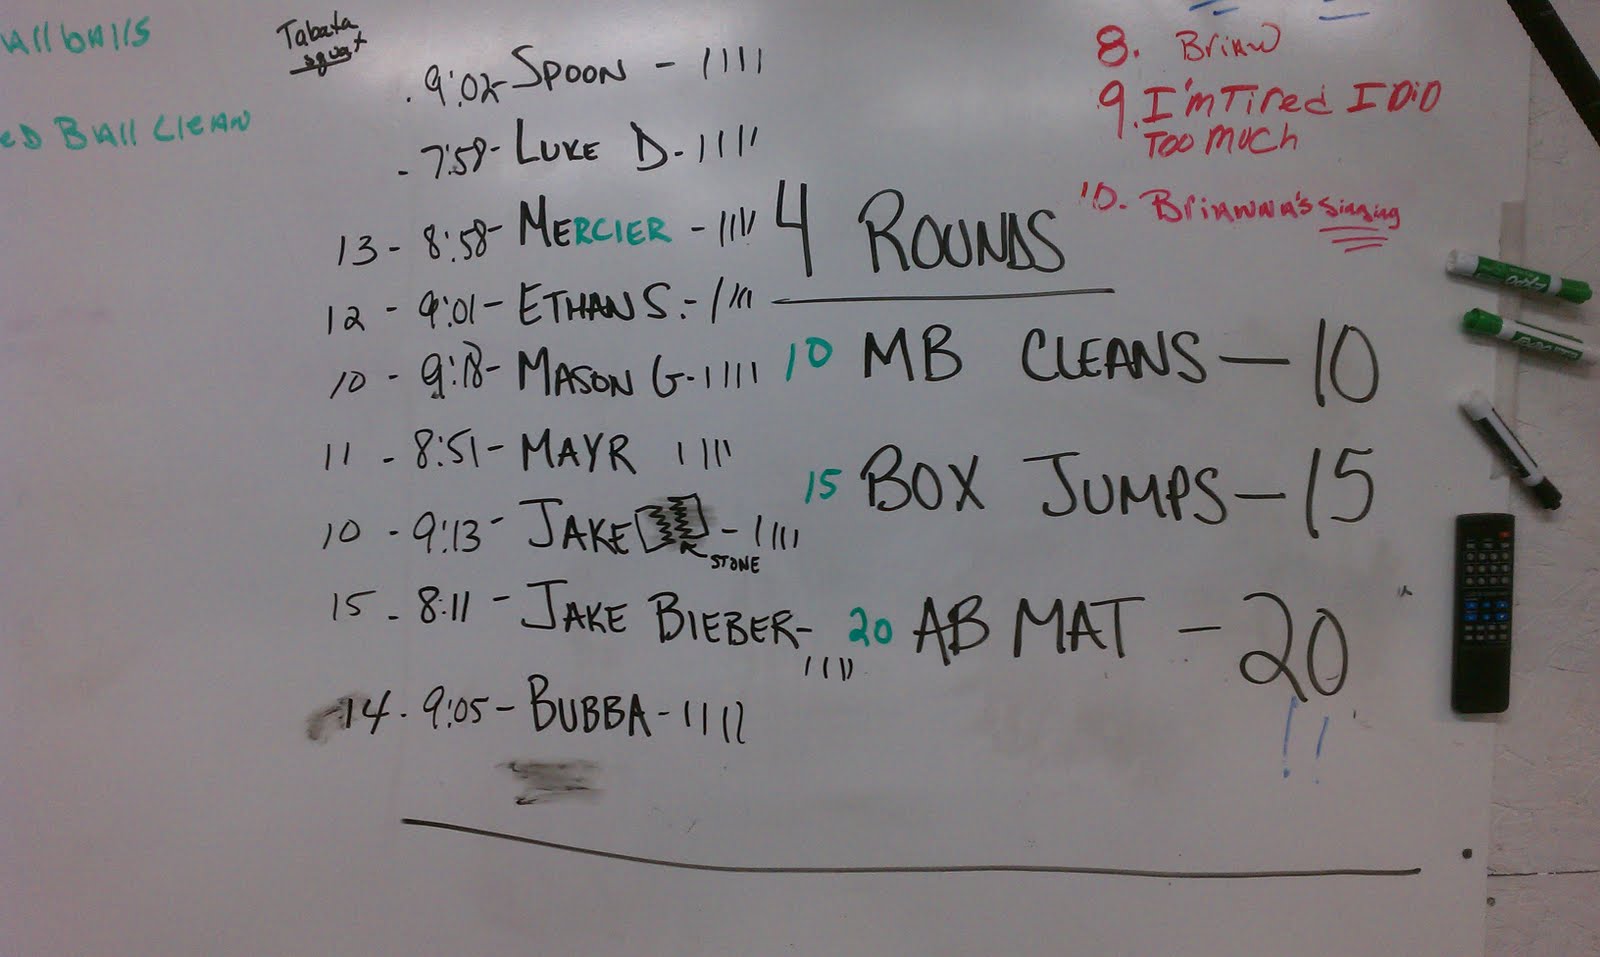 allballs
ed Ball Clean
Tabata
squat
. 9:02- SPOON - ||||
- 7:58- LUKE D- ||||
13 - 8:58- MERCIER - ||||
12 - 9:01- ETHAN S.- ||||
10 - 9:18- MASON G- ||||
11 - 8:51- MAYR ||||
10 - 9:13- JAKE - ||||
STONE
15 - 8:11 - JAKE BIEBER-
||||
14 - 9:05 - BUBBA - ||||
4 ROUNDS
10 MB CLEANS - 10
15 BOX JUMPS - 15
20 AB MAT - 20
!!
8. Brian
9. I'm Tired I DiD
Too much
10. Brianna's singing
EXPO